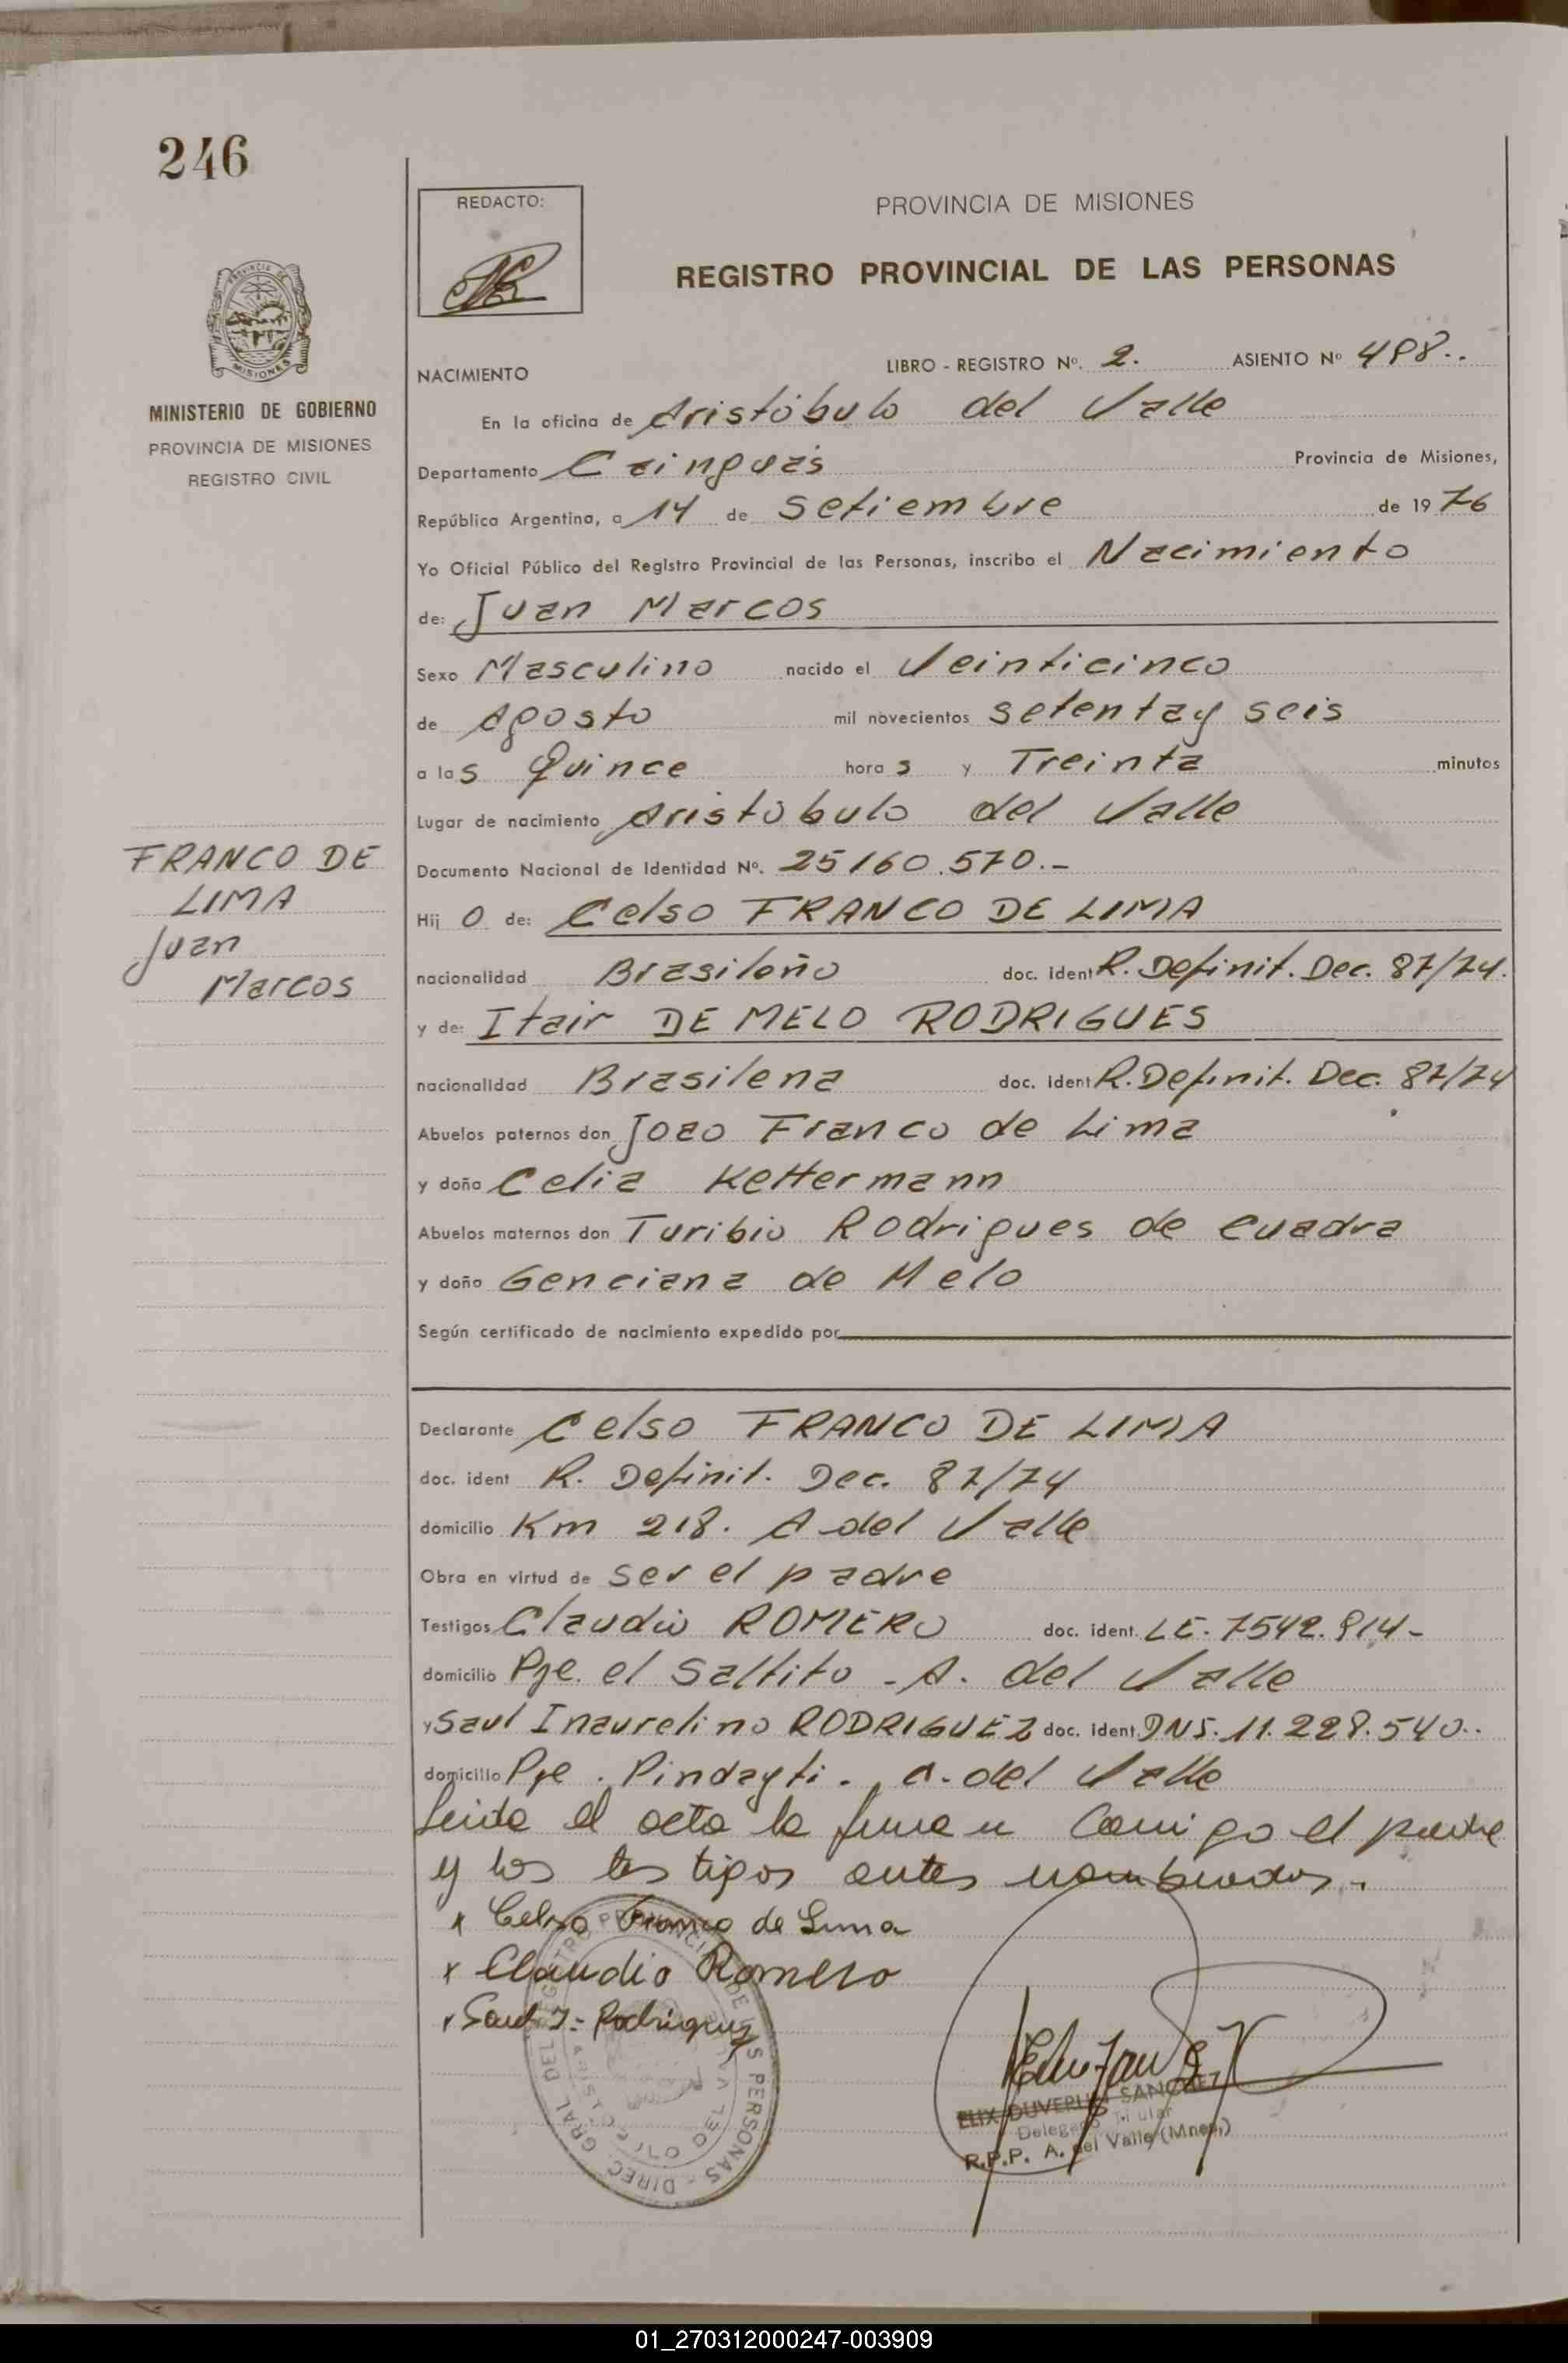 246
REDACTO:
PROVINCIA DE MISIONES
REGISTRO PROVINCIAL DE LAS PERSONAS
MINISTERIO DE GOBIERNO
PROVINCIA DE MISIONES
REGISTRO CIVIL
NACIMIENTO LIBRO - REGISTRO Nº. 2. ASIENTO Nº 498..
En la oficina de Aristóbulo del Valle
Departamento Cainguás Provincia de Misiones,
República Argentina, a 14 de Setiembre de 1976
Yo Oficial Público del Registro Provincial de las Personas, inscribo el Nacimiento
de: Juan Marcos
Sexo Masculino nacido el Veinticinco
de Agosto mil novecientos setenta y seis
a las Quince horas y Treinta minutos
Lugar de nacimiento Aristobulo del Valle
Documento Nacional de Identidad Nº. 25160.570.-
FRANCO DE
LIMA
Juan
Marcos
Hijo de: Celso FRANCO DE LIMA
nacionalidad Brasileño doc. ident R. Definit. Dec. 87/74.
y de: Itair DE MELO RODRIGUES
nacionalidad Brasilena doc. ident R. Definit. Dec. 87/74
Abuelos paternos don Joao Franco de Lima
y doña Celia Kettermann
Abuelos maternos don Turibio Rodrigues de Cuadra
y doña Genciana de Melo
Según certificado de nacimiento expedido por
Declarante Celso FRANCO DE LIMA
doc. ident R. Definit. Dec. 87/74
domicilio Km 218. A del Valle
Obra en virtud de ser el padre
Testigos Claudio ROMERO doc. ident. LE. 7542.914-
domicilio Pje. el Saltito - A. del Valle
y Saul Inaurelino RODRIGUEZ doc. ident. DNI. 11.228.540..
domicilio Pje. Pindayti. A. del Valle
Leida el acta la firman Conmigo el padre
y los testigos antes nombrados.
x Celso Franco de Lima
x Claudio Romero
x Saul I. Rodriguez
SANCHEZ
Delegado Titular
R.P.P. A. del Valle (Mnes.)
01_270312000247-003909